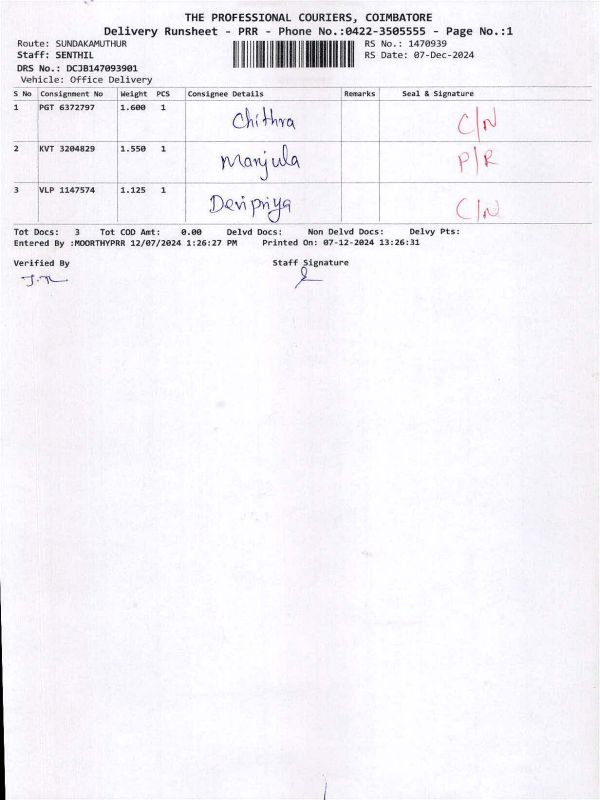 THE PROFESSIONAL COURIERS, COIMBATORE
Delivery Runsheet - PRR - Phone No.:0422-3505555 - Page No.:1
Route: SUNDAKAMUTHUR RS No.: 1470939
Staff: SENTHIL RS Date: 07-Dec-2024
DRS No.: DCJB147093901
Vehicle: Office Delivery
S No Consignment No Weight PCS Consignee Details Remarks Seal & Signature
1 PGT 6372797 1.600 1 Chithra C/N
2 KVT 3204829 1.550 1 Manjula P/R
3 VLP 1147574 1.125 1 Devipriya C/N
Tot Docs: 3 Tot COD Amt: 0.00 Delvd Docs: Non Delvd Docs: Delvy Pts:
Entered By :MOORTHYPRR 12/07/2024 1:26:27 PM Printed On: 07-12-2024 13:26:31
Verified By Staff Signature